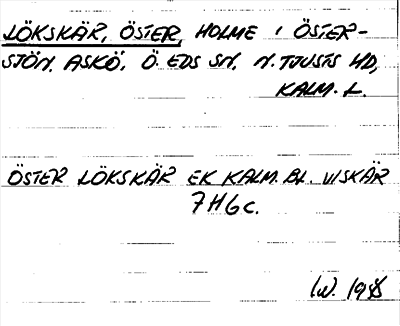 LÖKSKÄR, ÖSTER, HOLME I ÖSTER-
SJÖN. ASKÖ. Ö. EDS SN. N. TJUSTS HD,
KALM. L.
ÖSTER LÖKSKÄR EK KALM. BL. VISKÄR
7H6c.